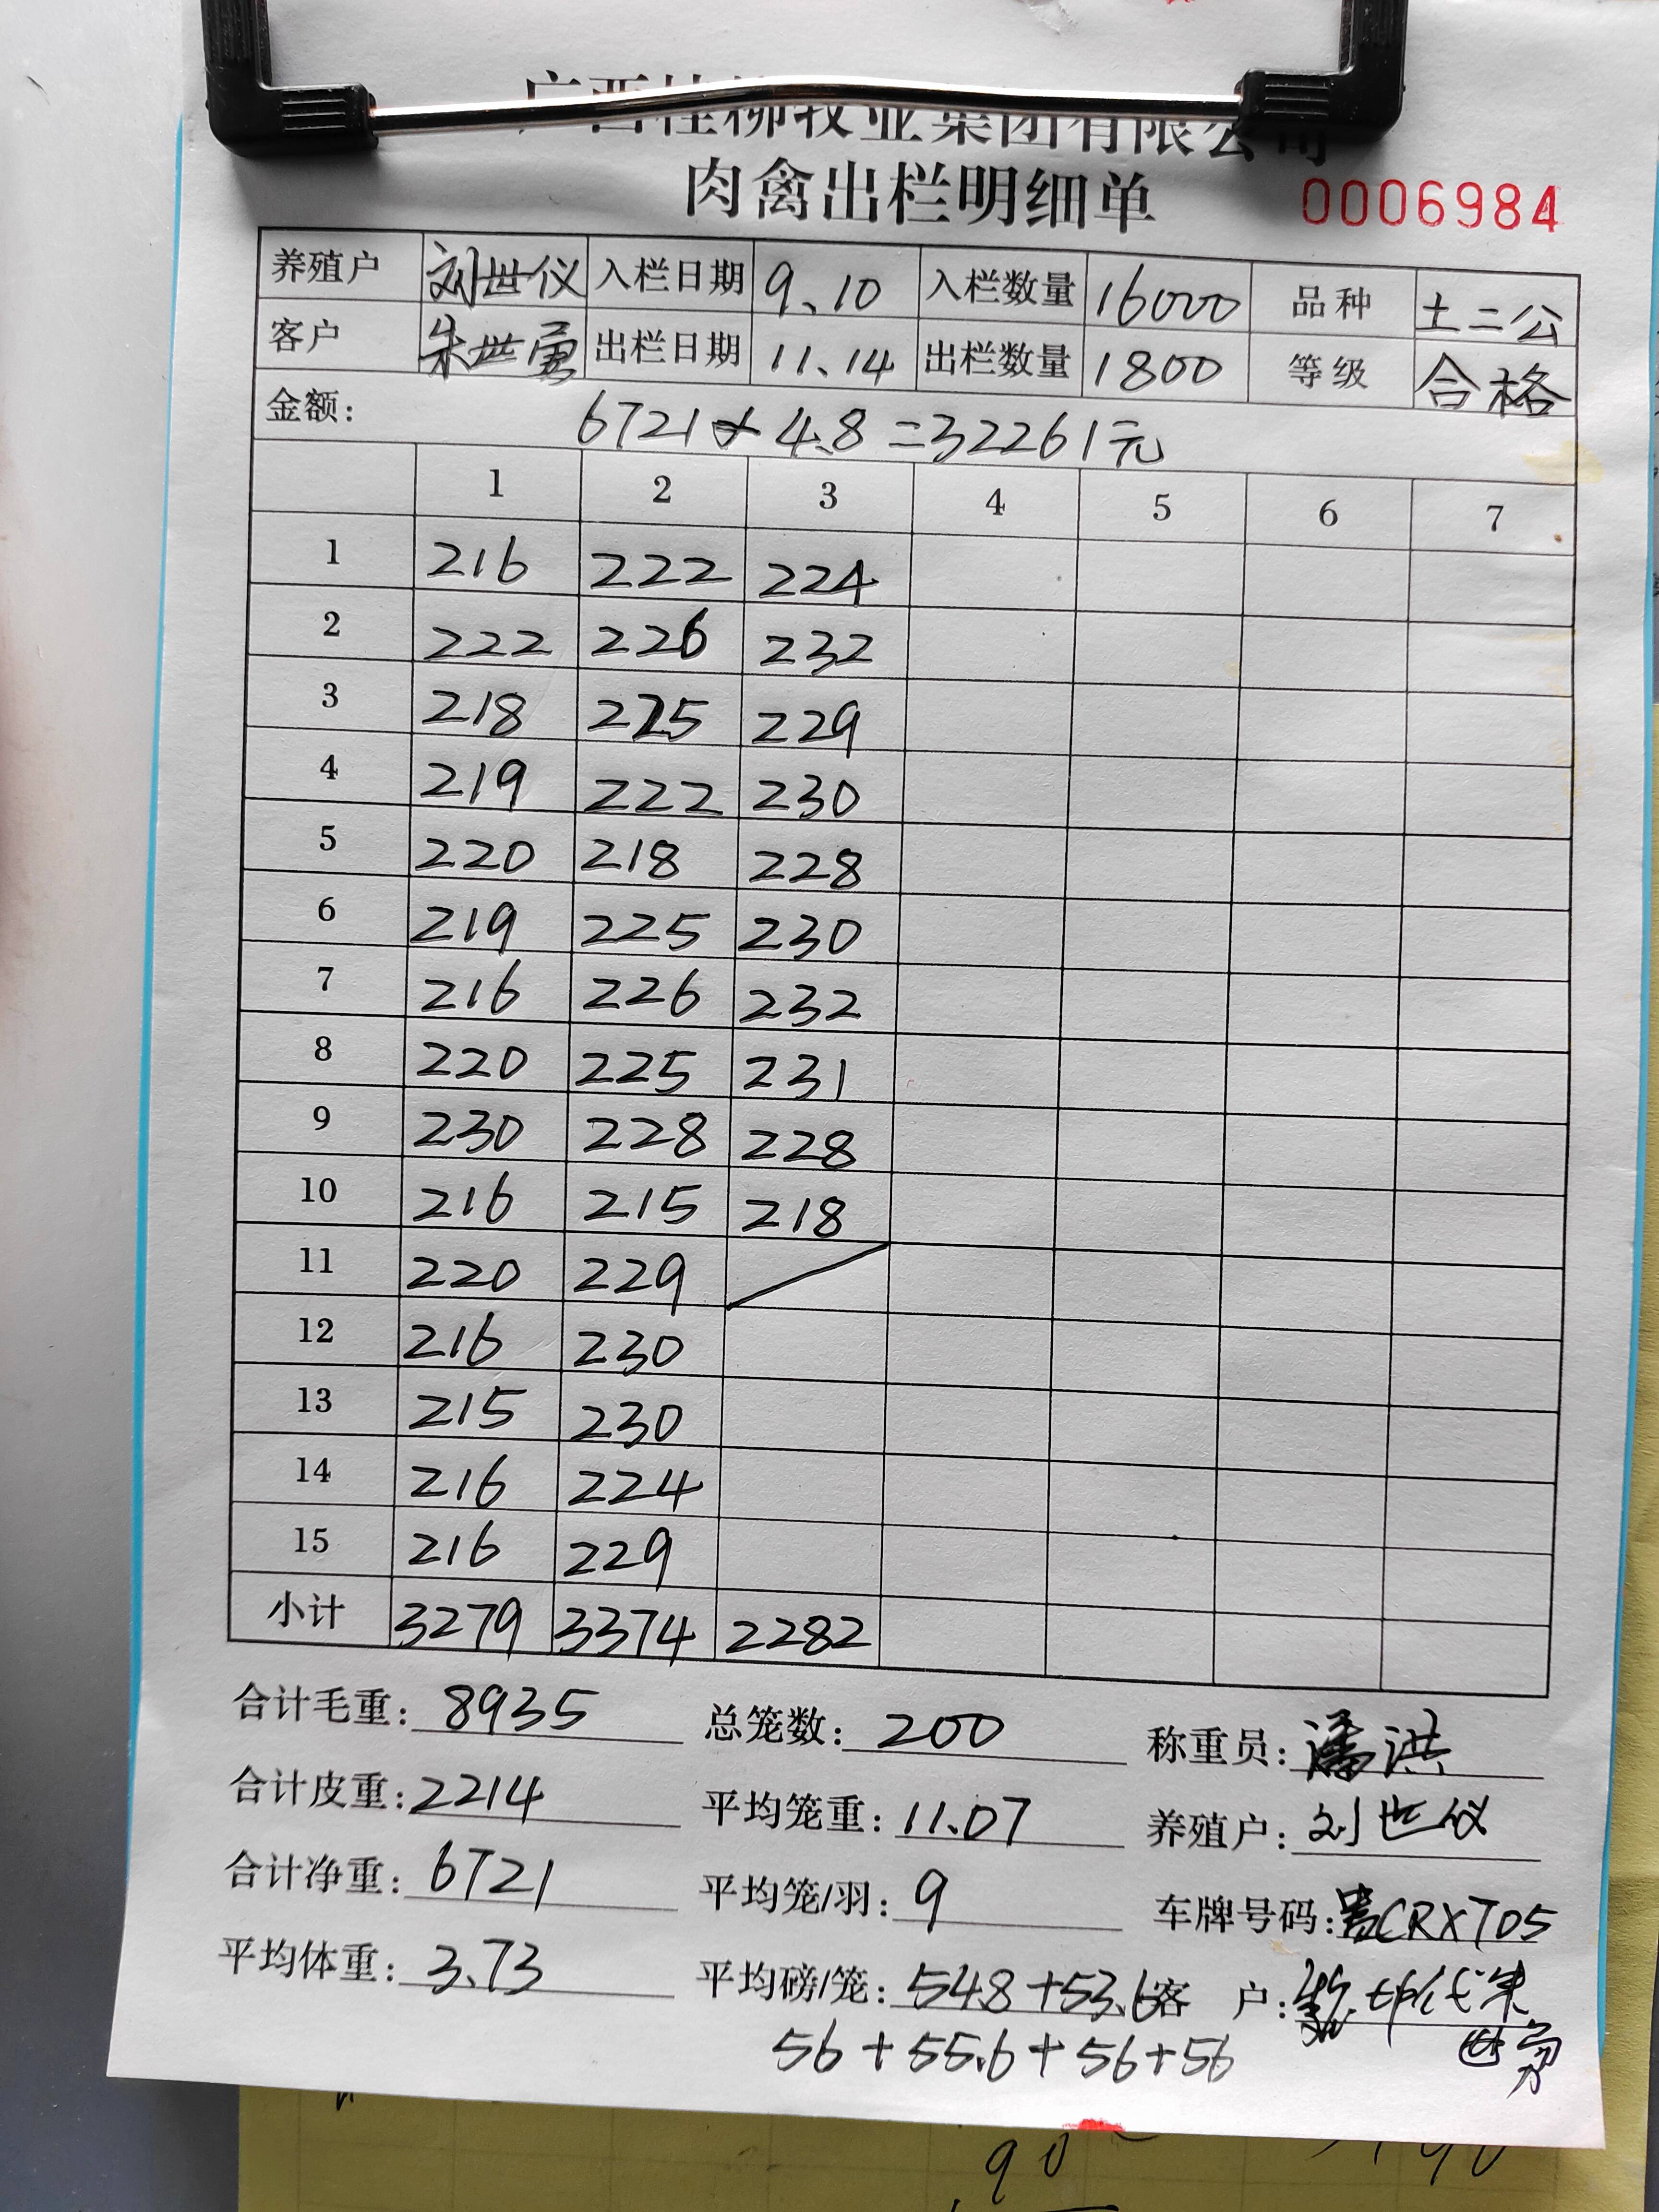 广西桂柳牧业集团有限公司
肉禽出栏明细单 0006984
养殖户 刘世仪 入栏日期 9.10 入栏数量 16000 品种 土二公
客户 朱世勇 出栏日期 11.14 出栏数量 1800 等级 合格
金额: 6721×4.8=32261元
1 2 3 4 5 6 7
1 216 222 224
2 222 226 232
3 218 225 229
4 219 222 230
5 220 218 228
6 219 225 230
7 216 226 232
8 220 225 231
9 230 228 228
10 216 215 218
11 220 229
12 216 230
13 215 230
14 216 224
15 216 229
小计 3279 3374 2282
合计毛重: 8935 总笼数: 200 称重员: 潘洪
合计皮重: 2214 平均笼重: 11.07 养殖户: 刘世仪
合计净重: 6721 平均笼/羽: 9 车牌号码: CRXT05
平均体重: 3.73 平均磅/笼: 54.8+53.6 客 户: 代朱
56+55.6+56+56 世勇
90